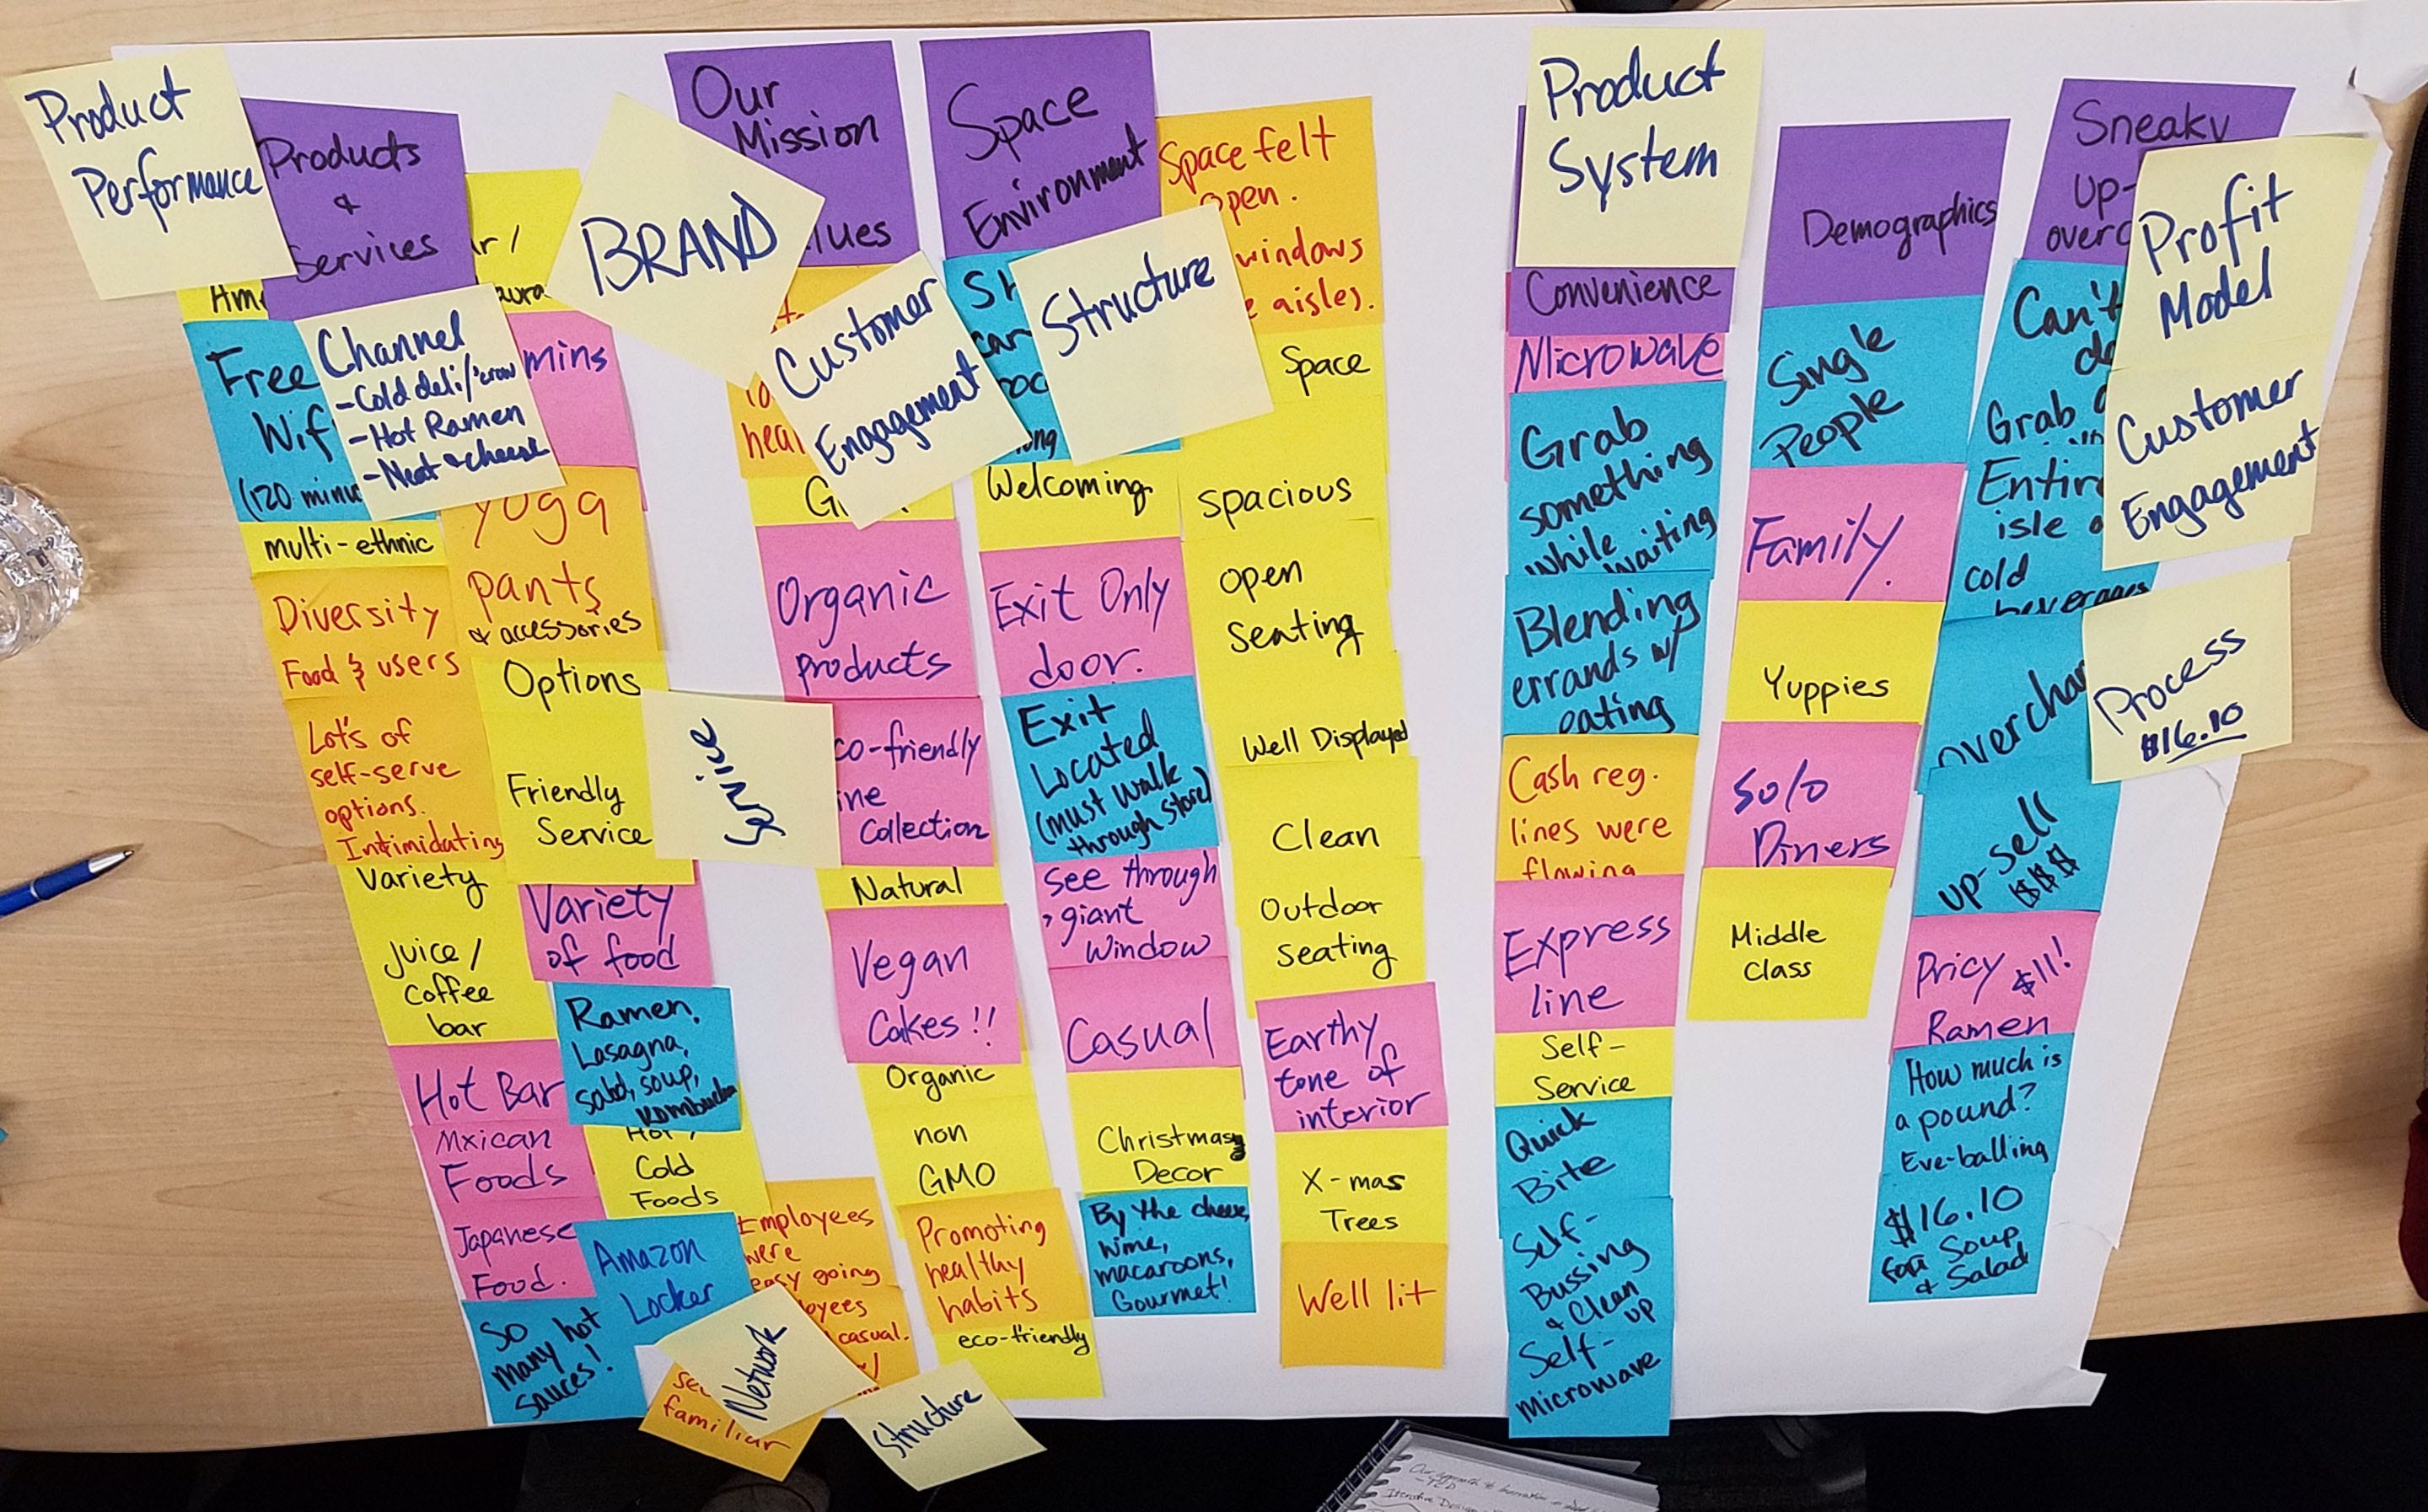 Product
Performance
Products
&
Services
Am
Free
Wif
(120 minu
Channel
-Cold deli/
-Hot Ramen
-Meat & cheese
mins
multi-ethnic
Diversity
Food & users
Lot's of
self-serve
options.
Intimidating
Variety
Juice/
Coffee
bar
Hot Bar
Mxican
Foods
Japanese
Food.
So
many hot
sauces!
yoga
pants
& accessories
Options
Friendly
Service
Variety
of food
Ramen,
Lasagna,
salad, soup,
Kombucha
Hot /
Cold
Foods
Amazon
Locker
Employees
were
easy going
oyees
casual.
familiar
Network
Structure
BRAND
Service
Our
Mission
lues
Customer
Engagement
heal
Organic
products
co-friendly
ine
Collection
Natural
Vegan
Cakes!!
Organic
non
GMO
Promoting
healthy
habits
eco-friendly
Space
Environment
Structure
Welcoming
Exit Only
door.
Exit
Located
(must walk
through store)
see through
giant
window
Casual
Christmas
Decor
By the cheese,
wine,
macaroons,
Gourmet!
Space felt
open.
windows
e aisles.
Space
Spacious
open
seating
Well Displayed
Clean
Outdoor
seating
Earthy
tone of
interior
X-mas
Trees
Well lit
Product
System
Convenience
Microwave
Grab
something
while waiting
Blending
errands w/
eating
Cash reg.
lines were
flowing
Express
line
Self-
Service
Quick
Bite
Self-
Bussing
& Clean
up
Self-
Microwave
Demographics
Single
People
Family.
Yuppies
Solo
Diners
Middle
Class
Sneaky
up-
overc
Profit
Model
Customer
Engagement
Can't
Grab
Entir
isle o
cold
beverages
overchar
Process
$16.10
up-sell
$$$
Pricy $11!
Ramen
How much is
a pound?
Eye-balling
$16.10
for Soup
& Salad